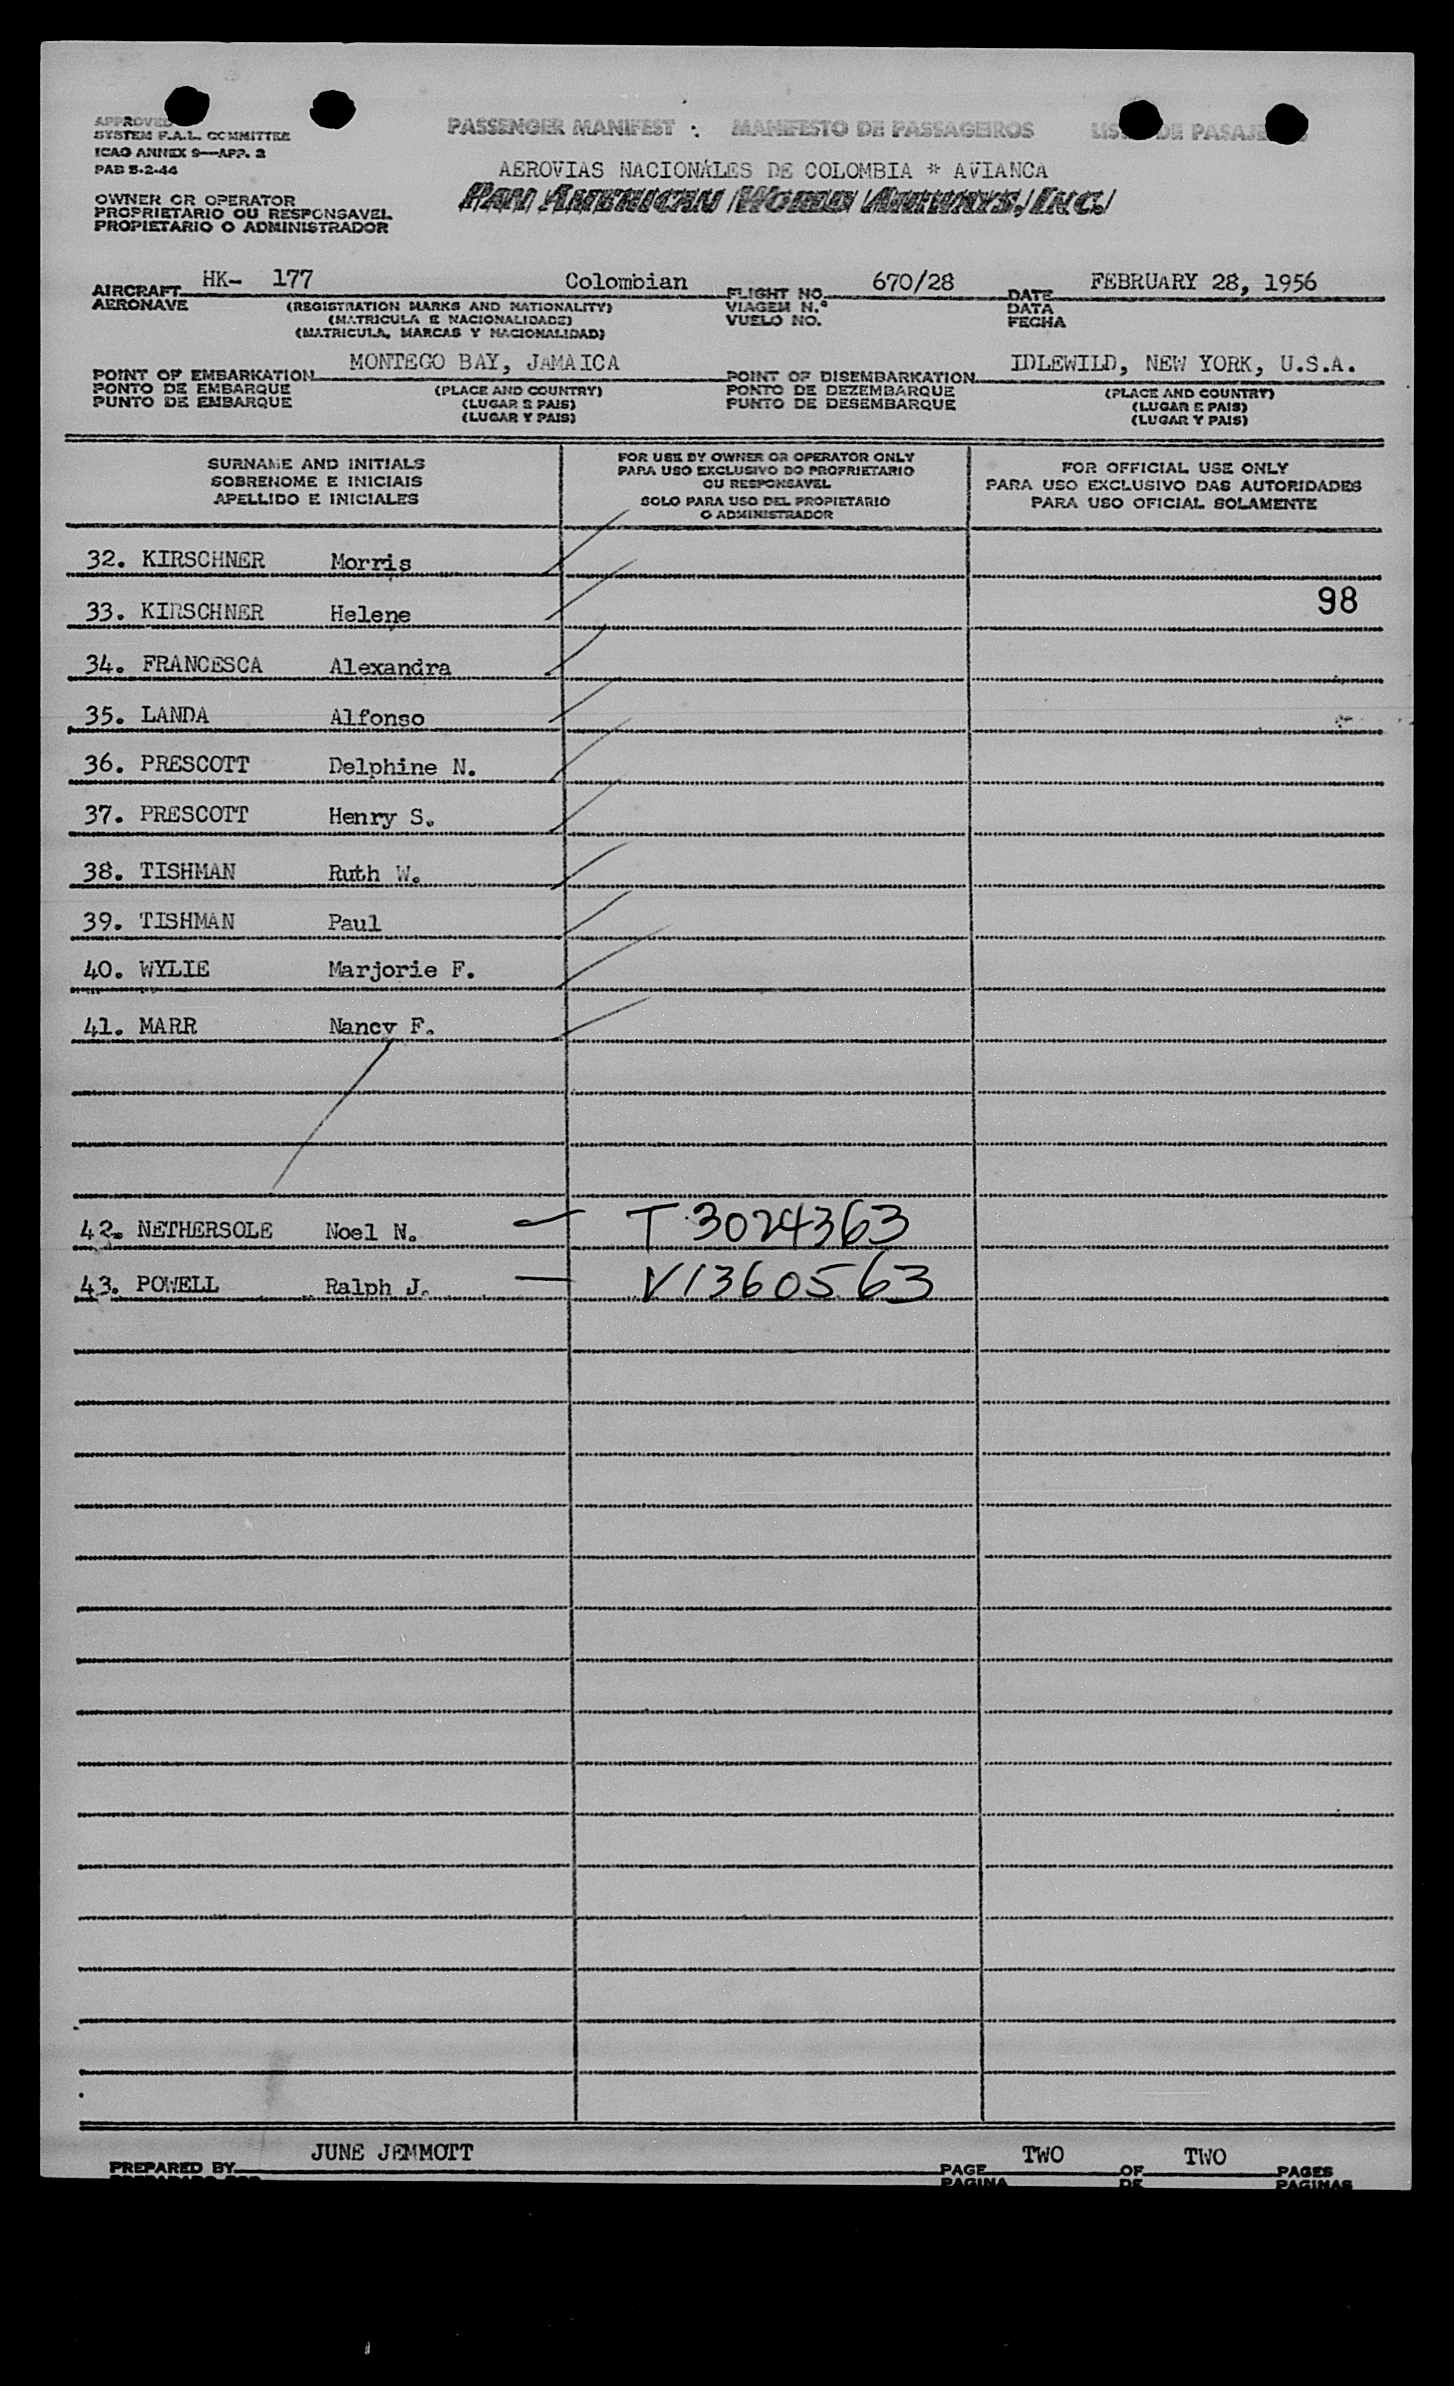 APPROVED
SYSTEM F.A.L. COMMITTEE
ICAO ANNEX 9—APP. 2
PAB 5-2-44
PASSENGER MANIFEST : MANIFESTO DE PASSAGEIROS LIS DE PASAJE S
AEROVIAS NACIONALES DE COLOMBIA * AVIANCA
PAN AMERICAN WORLD AIRWAYS, INC.
OWNER OR OPERATOR
PROPRIETARIO OU RESPONSAVEL
PROPIETARIO O ADMINISTRADOR
AIRCRAFT HK- 177 Colombian FLIGHT NO. 670/28 DATE FEBRUARY 28, 1956
AERONAVE (REGISTRATION MARKS AND NATIONALITY) VIAGEM N.º DATA
(MATRICULA E NACIONALIDADE) VUELO NO. FECHA
(MATRICULA, MARCAS Y NACIONALIDAD)
POINT OF EMBARKATION MONTEGO BAY, JAMAICA POINT OF DISEMBARKATION IDLEWILD, NEW YORK, U.S.A.
PONTO DE EMBARQUE (PLACE AND COUNTRY) PONTO DE DEZEMBARQUE (PLACE AND COUNTRY)
PUNTO DE EMBARQUE (LUGAR E PAIS) PUNTO DE DESEMBARQUE (LUGAR E PAIS)
(LUGAR Y PAIS) (LUGAR Y PAIS)
SURNAME AND INITIALS
SOBRENOME E INICIAIS
APELLIDO E INICIALES
FOR USE BY OWNER OR OPERATOR ONLY
PARA USO EXCLUSIVO DO PROPRIETARIO
OU RESPONSAVEL
SOLO PARA USO DEL PROPIETARIO
O ADMINISTRADOR
FOR OFFICIAL USE ONLY
PARA USO EXCLUSIVO DAS AUTORIDADES
PARA USO OFICIAL SOLAMENTE
32. KIRSCHNER Morris
33. KIRSCHNER Helene 98
34. FRANCESCA Alexandra
35. LANDA Alfonso
36. PRESCOTT Delphine N.
37. PRESCOTT Henry S.
38. TISHMAN Ruth W.
39. TISHMAN Paul
40. WYLIE Marjorie F.
41. MARR Nancy F.
42. NETHERSOLE Noel N. T 3024363
43. POWELL Ralph J. V1360563
PREPARED BY JUNE JEMMOTT PAGE TWO OF TWO PAGES
PAGINA DE PAGINAS